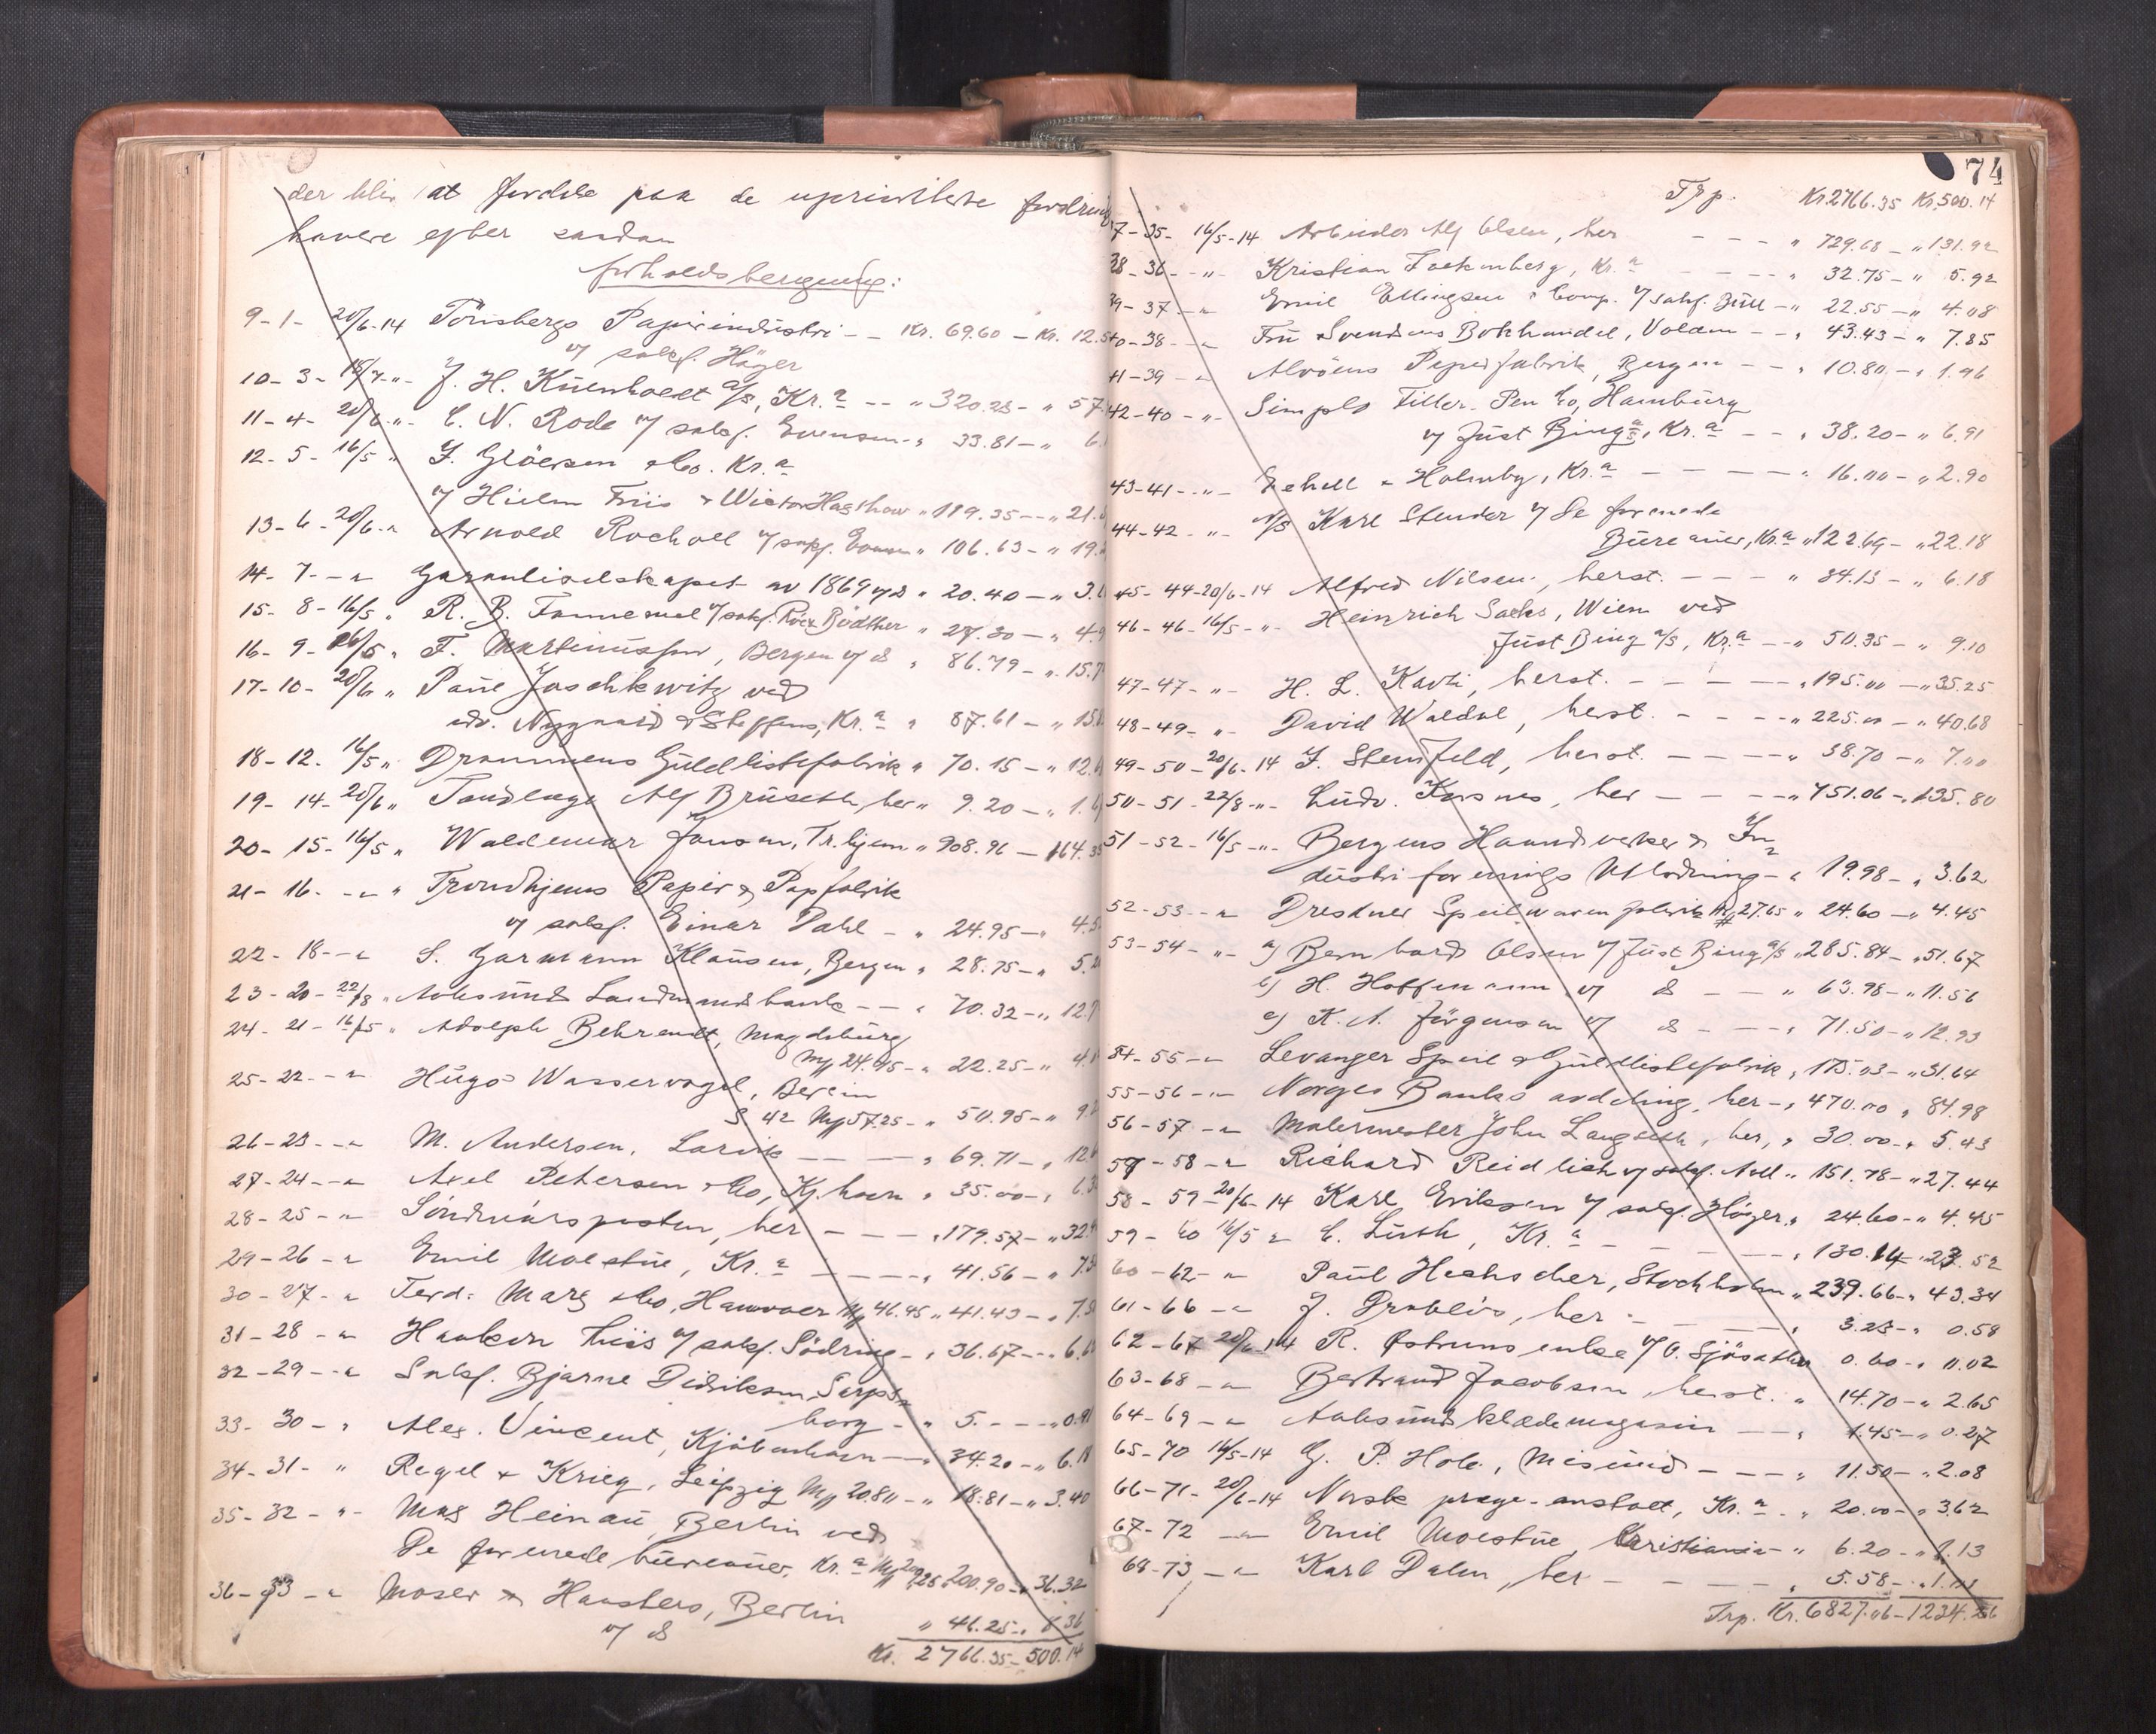 der blir at fordele paa de upriviligerte fordrings
havere efter saadan
forholdsberegning:
9-1- 20/6-14 Tönsbergs Papirindüstri -- Kr. 69.60 - Kr. 12.5
v/ sakf. Höyer
10-3- 18/7-"- J. H. Küenholdt A/S, Kr.a -- " 320.28 - " 57.
11-4- 20/6-"- C. N. Rode v/ sakf. Evensen - " 33.81 - " 6.1
12-5- 16/5 " J. Glöersen & Co. Kr.a
v/ Hielm Friis & Wictor Hagthow " 119.35 -- " 21.
13-6- 20/6-" Arnold Rocholl v/ sakf. " 106.63 - " 19.
14-7- -"- Garantiselskapet av 1869 v/d " 20.40 - " 3.
15-8- 16/5 " R. B. v/ sakf. Bödther " 27.30 - " 4.9
16-9- 16/5 " F. Martinüssen, Bergen v/ d " 86.79 - " 15.7
17-10- 20/6 " Paül Jaschkewitz ved
adv. Nygaard & Steffens, Kr.a " 87.61 - " 15.
18-12- 16/5 " Drammens Güldlistefabrik " 70.15 - " 12.
19-14- 20/6 " Tandlæge Alf Brüseth, her " 9.20 - " 1.6
20-15- 16/5 " Waldemar Jansen, Tr.hjem " 908.96 - 164.35
21-16- -"- " Trondhjems Papir & Papfabrik
v/ sakf. Einar Dahl - " 24.95 - " 4.5
22-18- -"- S. Garmann Klaüsen, Bergen " 28.75 - " 5.20
23-20- 22/8 " Aalesünds Landmandsbank -- " 70.32 - " 12.7
24-21- 16/5 " Adolph Behrendt, Magdebürg
Mk 24.95 - " 22.25 - " 4.
25-22- -"- Hügo Wasservogel, Berlin
S 42 Mk 57.25 - " 50.95 - " 9.2
26-23- -"- M. Andersen, Larvik -- -- " 69.71 - " 12.6
27-24- -"- Axel Petersen & Co, Kj.havn " 35.00 - " 6.3
28-25- " Söndmörsposten, her - - - " 179.57 - " 32.
29-26- " Emil Moestüe, Kr.a - - - - " 41.56 - " 7.5
30-27- " Ferd. Marx & Co, Hannover Mk 46.45 " 41.43 - " 7.5
31-28- " Haakon Thiis v/ sakf. Södring - " 36.67 -- " 6.6
32-29- -"- Sakf. Bjarne Didriksen, Sarps-
borg - " 5. - - " 0.91
33-30- " Alex. Vincent, Kjöbenhavn - - " 34.20 - " 6.18
34-31- " Regel & Krieg, Leipzig Mk 20.80 - " 18.81 - " 3.40
35-32- " Max Heinaü, Berlin ved
De forenede büreaüer, Kr.a Mk " 200.90 - " 36.32
36-33- " Moser & Hansters, Berlin
v/ d " 46.25 - " 8.36
Kr. 2766.35 - 500.14
74
Trp. Kr. 2766.35 Kr. 500.14
37-35- 16/5-14 Arbeider Alf Olsen, her - - - " 729.68 - " 131.92
38-36- -"- Kristian Falkenberg, Kr.a - - - - " 32.75 - " 5.92
39-37- -"- Emil Ellingsen & Comp. v/ sakf. Büll - " 22.55 - " 4.08
40-38- -"- Frü Svendsens Bokhandel, Volden - - " 43.43 - " 7.85
41-39- -"- Alvöens Papirfabrik, Bergen - - " 10.80 - " 1.96
42-40- -"- Simplo Filler-Pen Co, Hambürg
v/ Jüst Bing A/S, Kr.a - - " 38.20 - " 6.91
43-41- -"- & Holmby, Kr.a - - - - - " 16.00 - " 2.90
44-42- -"- A/S Karl Stender v/ De forenede
Büreaüer, Kr.a " 122.69 - " 22.18
45-44-20/6-14 Alfred Nilsen, herst. - - - " 34.13 - " 6.18
46-46-16/5-"- Heinrich Sachs, Wien ved
Jüst Bing A/S, Kr.a -- " 50.35 - " 9.10
47-47- -"- H. L. Kavli, herst. - - - - - " 195.00 - " 35.25
48-49- " David Waldal, herst. - - - - " 225.00 - " 40.68
49-50-20/6-14 J. Steinfeld, herst. - - - - " 38.70 - " 7.00
50-51-22/8-"- Lüdv. Korsnes, her - - - - " 751.06 - " 135.80
51-52-16/5-"- Bergens Haandverker & In-
düstriforenings Utlodning - " 19.98 - " 3.62
52-53- -"- Dresdner Speilwarenfabrik Mk 27.65 " 24.60 - " 4.45
53-54- -"- a) Bernhard Olsen v/ Jüst Bing A/S " 285.84 - " 51.67
b) H. Hoffmann v/ d - - " 63.98 - " 11.56
c) K. A. Jörgensen v/ d - - - " 71.50 - " 12.93
54-55- -"- Levanger Speil & Güldlistefabrik " 175.03 - " 31.64
55-56- -"- Norges Banks avdeling, her - " 470.00 " 84.98
56-57- -"- Malermester John Langseth, her, " 30.00 - " 5.43
57-58- -"- Richard Reidlich v/ sakf. Noll " 151.78 - " 27.44
58-59-20/6-14 Karl Eriksen v/ sakf. Höyer " 24.60 - " 4.45
59-60 16/5 " C. Lüth, Kr.a - - - - - " 130.14 - " 23.52
60-62- " Paül Heckscher, Stockholm " 239.66 - " 43.34
61-66- -"- J. Drabløs, her - - - - " 3.23 - " 0.58
62-67 20/6-14 R. Østrems enke v/ O. Sjösæther 0.60 - " 0.02
63-68- -"- Bertrand Jacobsen, herst. " 14.70 - " 2.65
64-69- -"- Aalesünds klædemagasin - - " 1.45 - " 0.27
65-70 16/5-14 G. P. Hole, Misünd - - - " 11.50 - " 2.08
66-71- 20/6-14 Norsk præge-anstalt, Kr.a - " 20.00 - " 3.62
67-72 -"- Emil Moestüe, Kristiania - " 6.20 - " 1.13
68-73 -"- Karl Dalen, her - - - - " 5.58 - " 1.01
Trp. Kr. 6827.06 - 1234.26